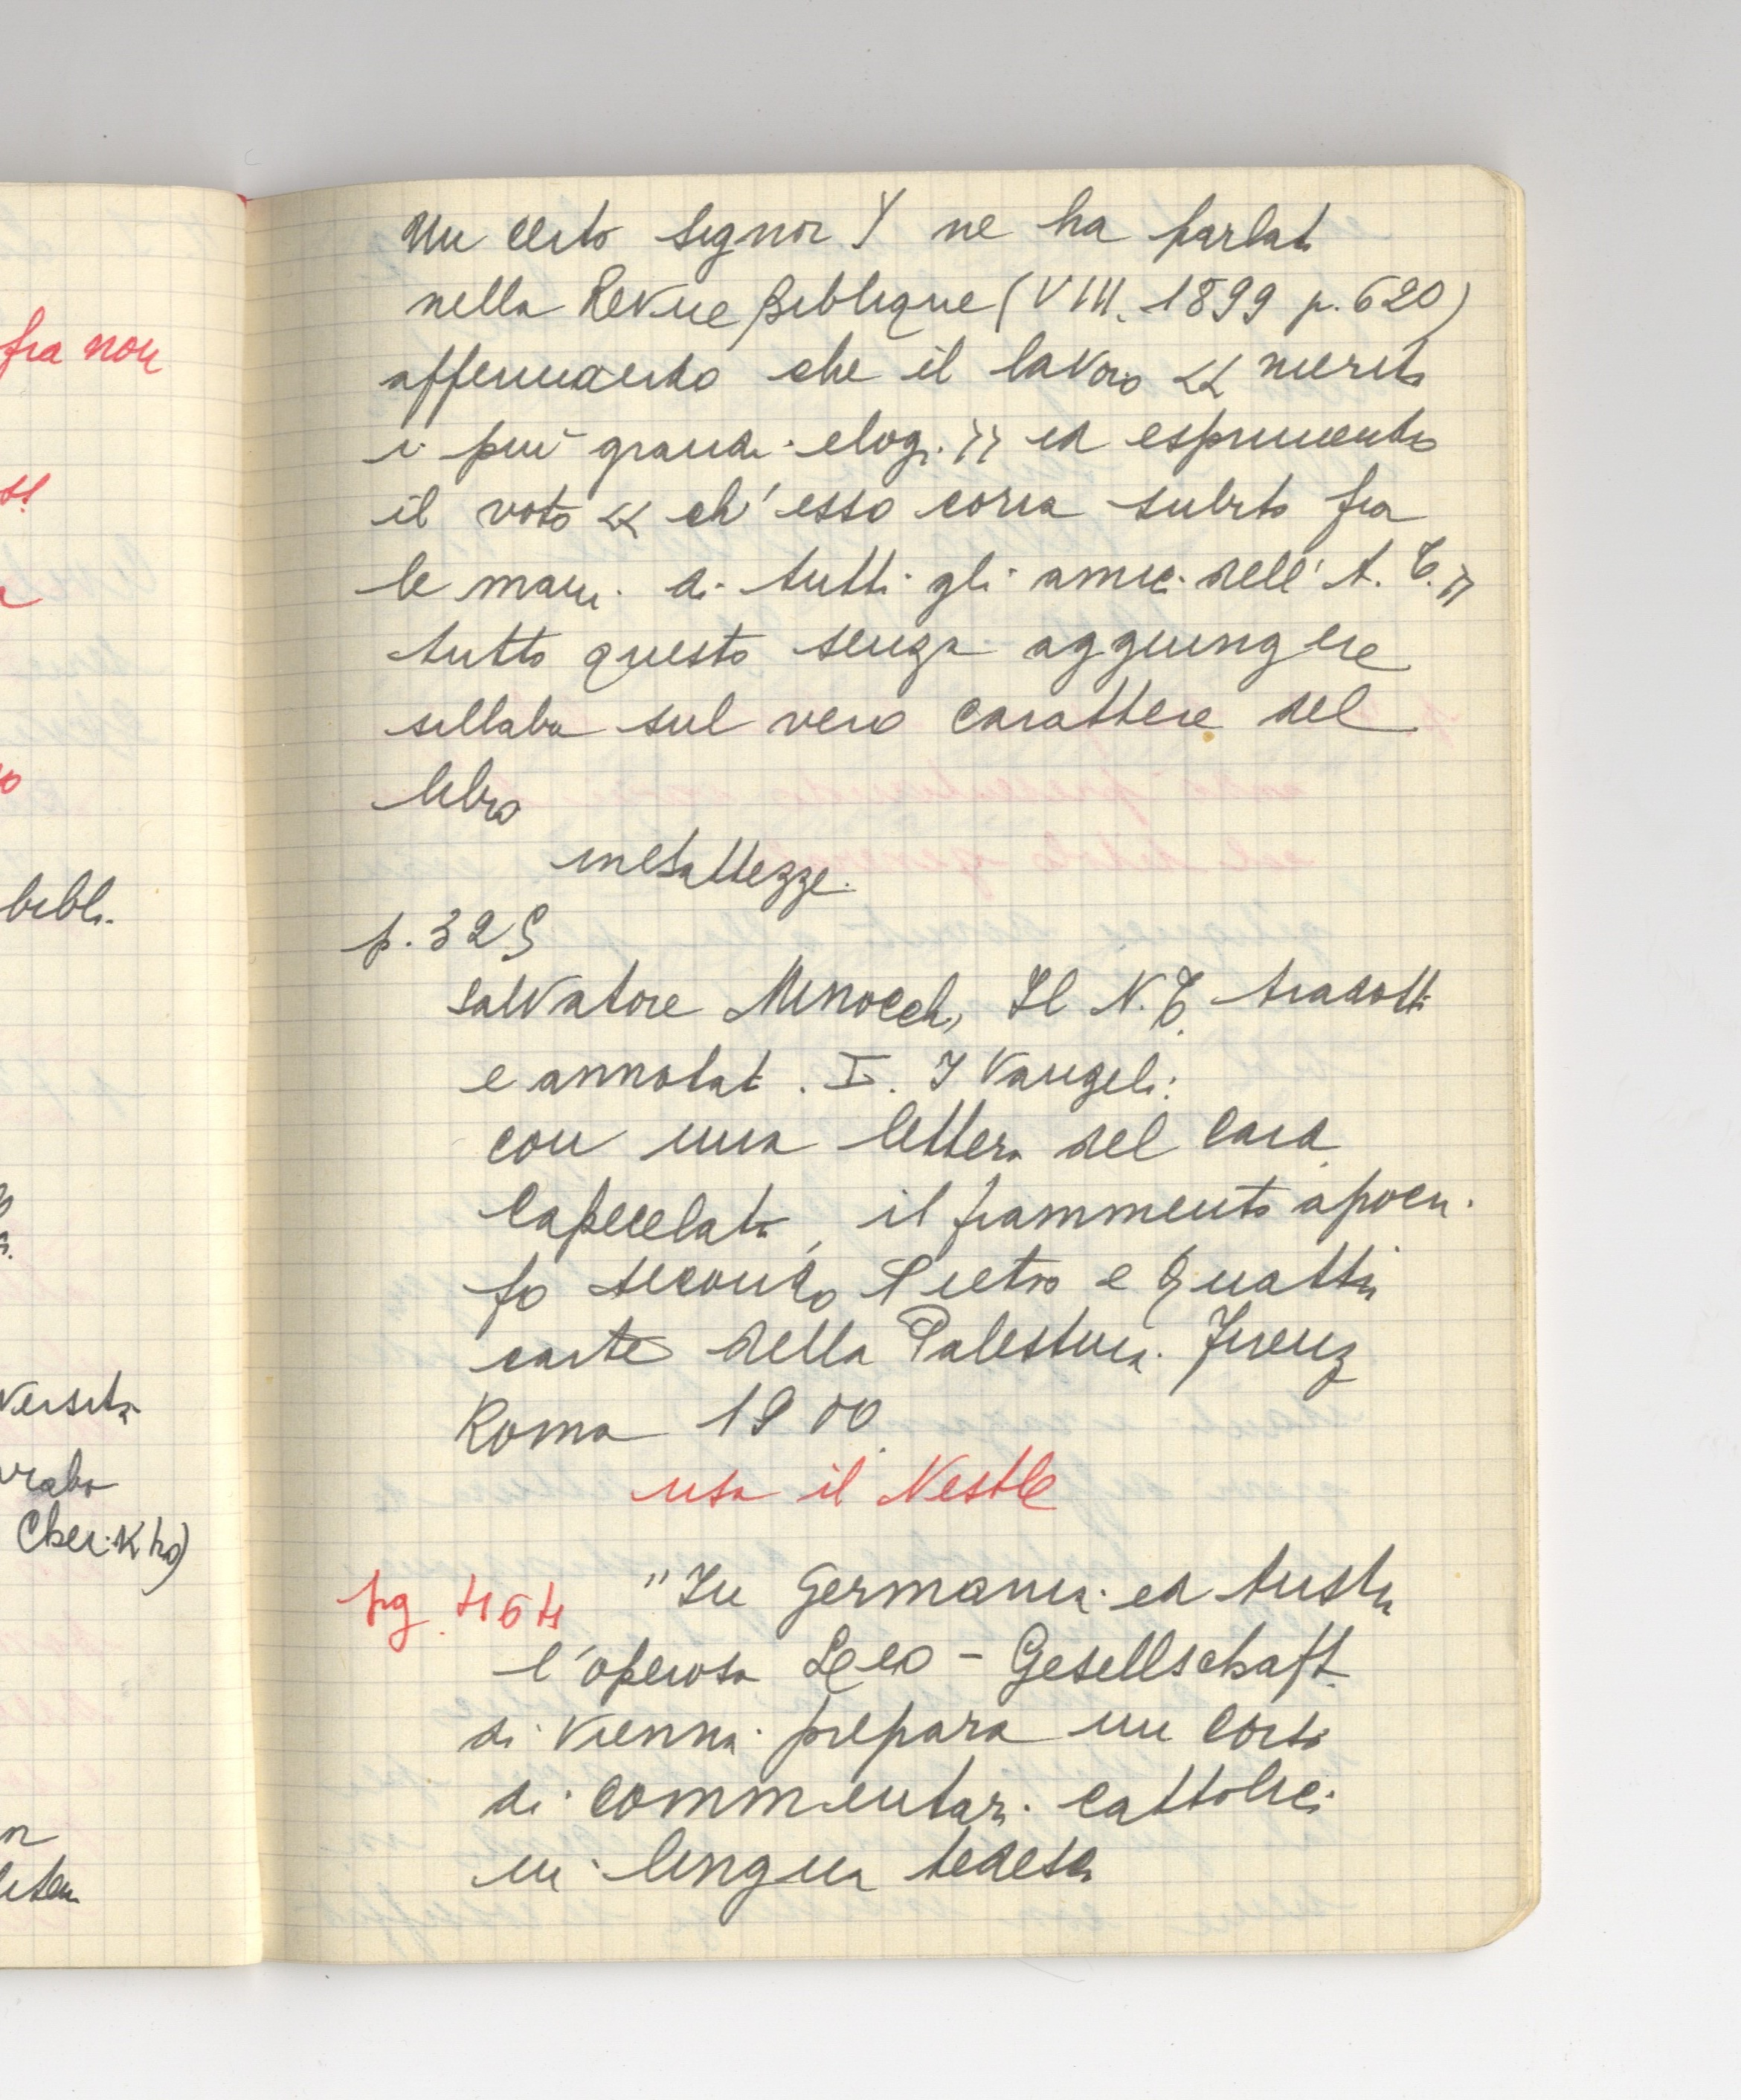 fra non
bibli.
versità
Cheikho)
Un certo signor Y ne ha parlato
nella Revue Biblique (VIII. 1899 p. 620)
affermando che il lavoro << merita
i più grandi elogi >> ed esprimendo
il voto << ch'esso corra subito fra
le mani di tutti gli amici dell'A. T. >>
tutto questo senza aggiungere
sillaba sul vero carattere del
libro
inesattezze.
p. 329
Salvatore Minocchi, Il N.T. tradotto
e annotato. I. I Vangeli:
con una lettera del Card.
Capecelatro, il frammento apocri-
fo secondo Pietro e Quattro
carte della Palestina. Firenze
Roma 1900.
usa il Nestle
pg. 464 "In Germania ed Austria
l'operosa Leo - Gesellschaft
di Vienna prepara un corso
di commentari cattolici
in lingua tedesca